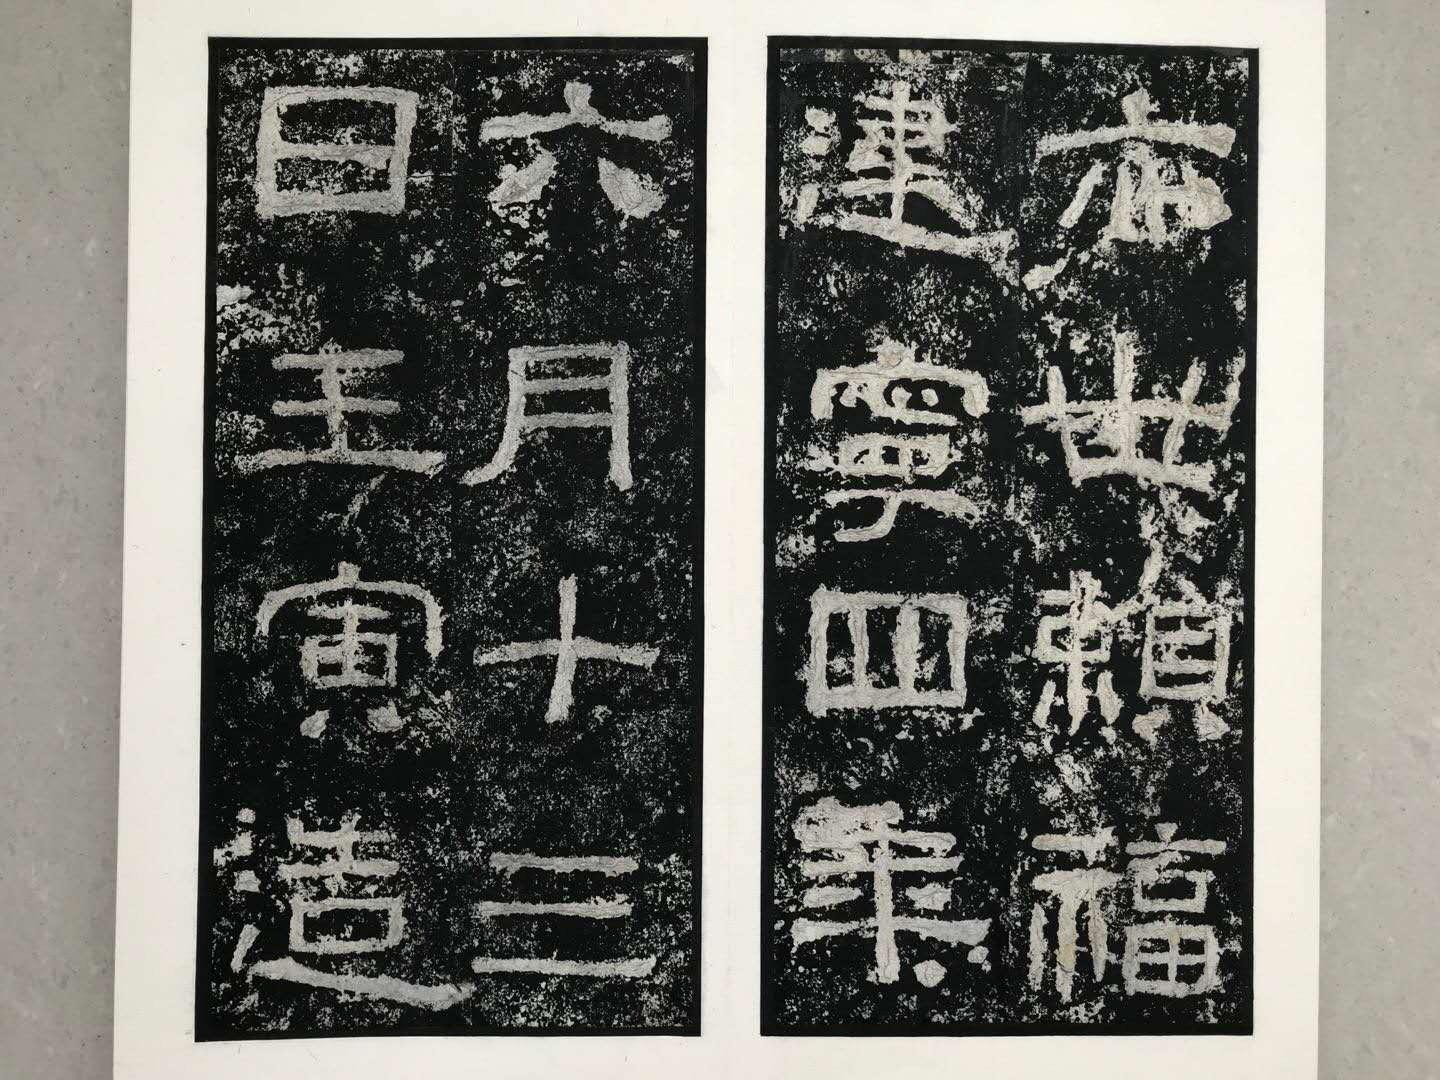 亦世賴福
建寧四年
六月十三
日壬寅造